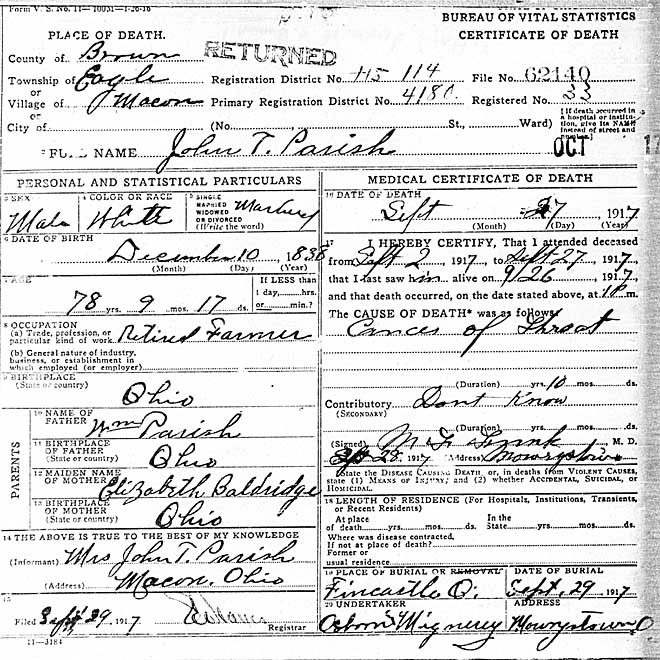 Form V. S. No. 11—10031—1-26-16
BUREAU OF VITAL STATISTICS
CERTIFICATE OF DEATH
PLACE OF DEATH.
County of Brown
RETURNED
Township of Eagle
Registration District No. 115 114 File No. 62140
or
Village of Macon Primary Registration District No. 4180 Registered No. 33
or
City of (No. St., Ward)
[If death occurred in a hospital or institution, give its NAME instead of street and number.]
2 FULL NAME John T. Parish
OCT
PERSONAL AND STATISTICAL PARTICULARS
3 SEX Male
4 COLOR OR RACE White
5 SINGLE MARRIED WIDOWED OR DIVORCED (Write the word) Married
6 DATE OF BIRTH
December 10 1838
(Month) (Day) (Year)
7 AGE
78 yrs. 9 mos. 17 ds.
If LESS than 1 day,.....hrs. or.....min.?
8 OCCUPATION
(a) Trade, profession, or particular kind of work Retired Farmer
(b) General nature of industry, business, or establishment in which employed (or employer)
9 BIRTHPLACE
(State or country) Ohio
PARENTS
10 NAME OF FATHER Wm Parish
11 BIRTHPLACE OF FATHER (State or country) Ohio
12 MAIDEN NAME OF MOTHER Elizabeth Baldridge
13 BIRTHPLACE OF MOTHER (State or country) Ohio
14 THE ABOVE IS TRUE TO THE BEST OF MY KNOWLEDGE
(Informant) Mrs John T. Parish
(Address) Macon, Ohio
15
Filed Sept 29, 1917 Registrar
11—3184
MEDICAL CERTIFICATE OF DEATH
16 DATE OF DEATH
Sept 27, 1917
(Month) (Day) (Year)
17 I HEREBY CERTIFY, That I attended deceased
from Sept 2, 1917, to Sept 27, 1917,
that I last saw him alive on 9/26, 1917,
and that death occurred, on the date stated above, at m.
The CAUSE OF DEATH* was as follows:
Cancer of Throat
(Duration) yrs. 10 mos. ds.
Contributory Dont Know
(SECONDARY)
(Duration) yrs. mos. ds.
(Signed) M. D.
1917 (Address) Mowrystown
*State the DISEASE CAUSING DEATH, or, in deaths from VIOLENT CAUSES, state (1) MEANS OF INJURY; and (2) whether ACCIDENTAL, SUICIDAL, or HOMICIDAL.
18 LENGTH OF RESIDENCE (For Hospitals, Institutions, Transients, or Recent Residents)
At place of death yrs. mos. ds. In the State yrs. mos. ds.
Where was disease contracted, If not at place of death?
Former or usual residence
19 PLACE OF BURIAL OR REMOVAL DATE OF BURIAL
Fincastle O. Sept. 29 1917
20 UNDERTAKER ADDRESS
Osborn Mignerey Mowrystown, O